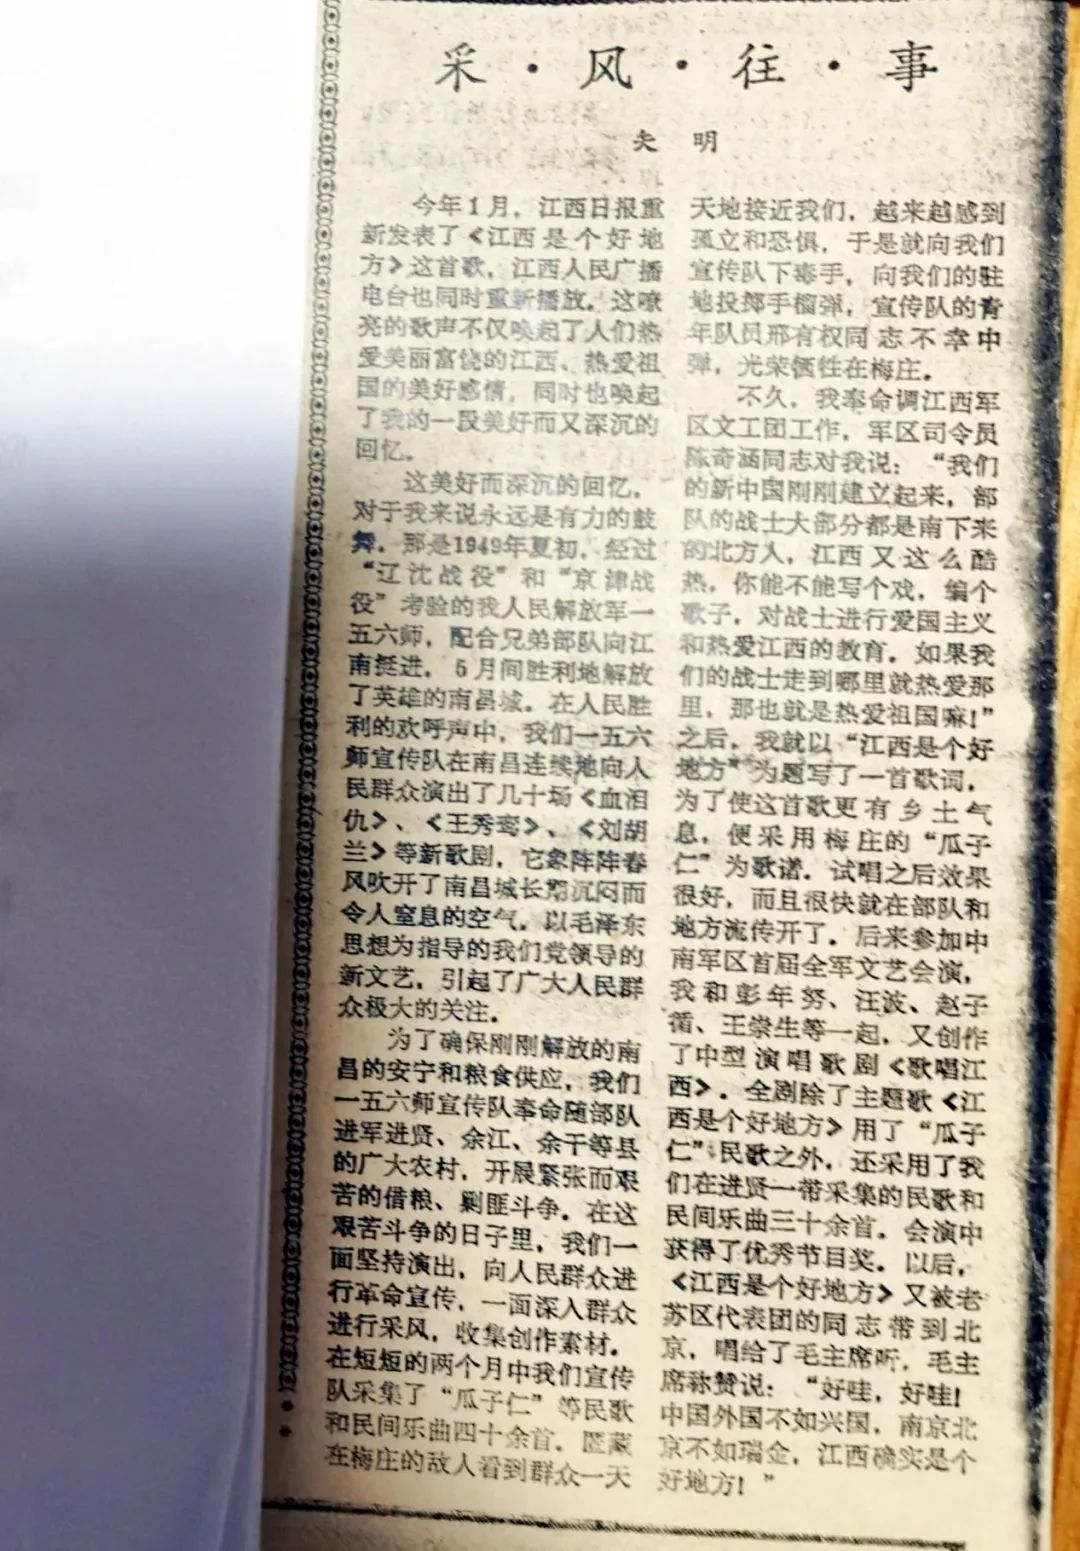 采·风·往·事
夫 明
今年1月，江西日报重
新发表了《江西是个好地
方》这首歌，江西人民广播
电台也同时重新播放。这嘹
亮的歌声不仅唤起了人们热
爱美丽富饶的江西、热爱祖
国的美好感情，同时也唤起
了我的一段美好而又深沉的
回忆。
这美好而深沉的回忆，
对于我来说永远是有力的鼓
舞。那是1949年夏初，经过
“辽沈战役”和“京津战
役”考验的我人民解放军一
五六师，配合兄弟部队向江
南挺进，5月间胜利地解放
了英雄的南昌城。在人民胜
利的欢呼声中，我们一五六
师宣传队在南昌连续地向人
民群众演出了几十场《血泪
仇》、《王秀鸾》、《刘胡
兰》等新歌剧，它象阵阵春
风吹开了南昌城长期沉闷而
令人窒息的空气。以毛泽东
思想为指导的我们党领导的
新文艺，引起了广大人民群
众极大的关注。
为了确保刚刚解放的南
昌的安宁和粮食供应，我们
一五六师宣传队奉命随部队
进军进贤、余江、余干等县
的广大农村，开展紧张而艰
苦的借粮、剿匪斗争。在这
艰苦斗争的日子里，我们一
面坚持演出，向人民群众进
行革命宣传，一面深入群众
进行采风，收集创作素材。
在短短的两个月中我们宣传
队采集了“瓜子仁”等民歌
和民间乐曲四十余首。匿藏
在梅庄的敌人看到群众一天
天地接近我们，越来越感到
孤立和恐惧，于是就向我们
宣传队下毒手，向我们的驻
地投掷手榴弹，宣传队的青
年队员邢有权同志不幸中
弹，光荣牺牲在梅庄。
不久，我奉命调江西军
区文工团工作，军区司令员
陈奇涵同志对我说：“我们
的新中国刚刚建立起来，部
队的战士大部分都是南下来
的北方人，江西又这么酷
热，你能不能写个戏，编个
歌子，对战士进行爱国主义
和热爱江西的教育。如果我
们的战士走到哪里就热爱那
里，那也就是热爱祖国嘛！”
之后，我就以“江西是个好
地方”为题写了一首歌词，
为了使这首歌更有乡土气
息，便采用梅庄的“瓜子
仁”为歌谱。试唱之后效果
很好，而且很快就在部队和
地方流传开了。后来参加中
南军区首届全军文艺会演，
我和彭年努、汪波、赵子
循、王崇生等一起，又创作
了中型演唱歌剧《歌唱江
西》。全剧除了主题歌《江
西是个好地方》用了“瓜子
仁”民歌之外，还采用了我
们在进贤一带采集的民歌和
民间乐曲三十余首。会演中
获得了优秀节目奖。以后，
《江西是个好地方》又被老
苏区代表团的同志带到北
京，唱给了毛主席听，毛主
席称赞说：“好哇，好哇！
中国外国不如兴国，南京北
京不如瑞金，江西确实是个
好地方！”